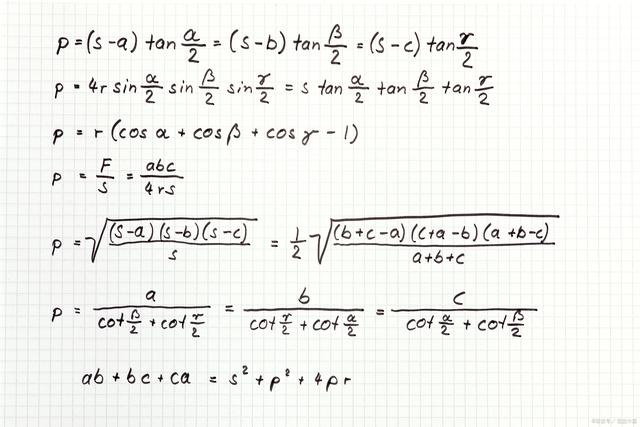 p = (s-a) tan α/2 = (s-b) tan β/2 = (s-c) tan γ/2
p = 4r sin α/2 sin β/2 sin γ/2 = s tan α/2 tan β/2 tan γ/2
p = r (cos α + cos β + cos γ - 1)
p = F/s = abc/4rs
p = √((s-a)(s-b)(s-c)/s) = 1/2 √((b+c-a)(c+a-b)(a+b-c)/a+b+c)
p = a/(cot β/2 + cot γ/2) = b/(cot γ/2 + cot α/2) = c/(cot α/2 + cot β/2)
ab + bc + ca = s² + p² + 4pr